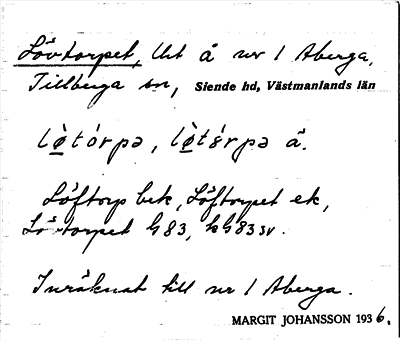 Lövtorpet, Utt å nr 1 Aberga,
Tillberga sn, Siende hd, Västmanlands län
lø̀tórpə, lø̀tɛ́rpə å.
Löftorp bek, Löftorpet ek,
Lövtorpet G83, hG83 sv.
Inräknat till nr 1 Aberga.
MARGIT JOHANSSON 1936.